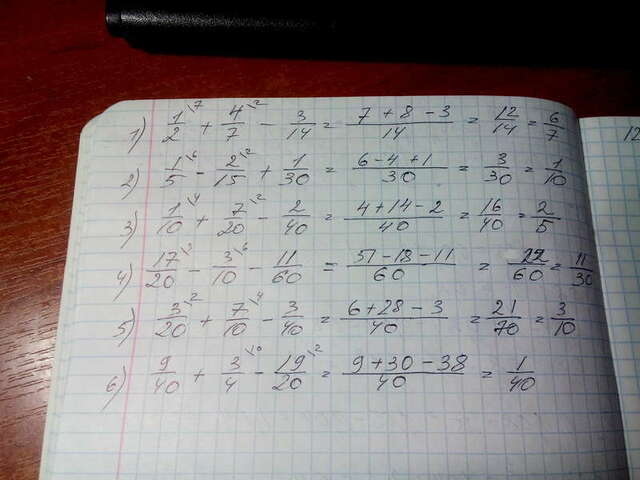 1) 1/2\7 + 4/7\2 - 3/14 = 7+8-3/14 = 12/14 = 6/7
2) 1/5\6 - 2/15\2 + 1/30 = 6-4+1/30 = 3/30 = 1/10
3) 1/10\4 + 7/20\2 - 2/40 = 4+14-2/40 = 16/40 = 2/5
4) 17/20\3 - 3/10\6 - 11/60 = 51-18-11/60 = 22/60 = 11/30
5) 3/20\2 + 7/10\4 - 3/40 = 6+28-3/40 = 21/70 = 3/10
6) 9/40 + 3/4\10 - 19/20\2 = 9+30-38/40 = 1/40
12